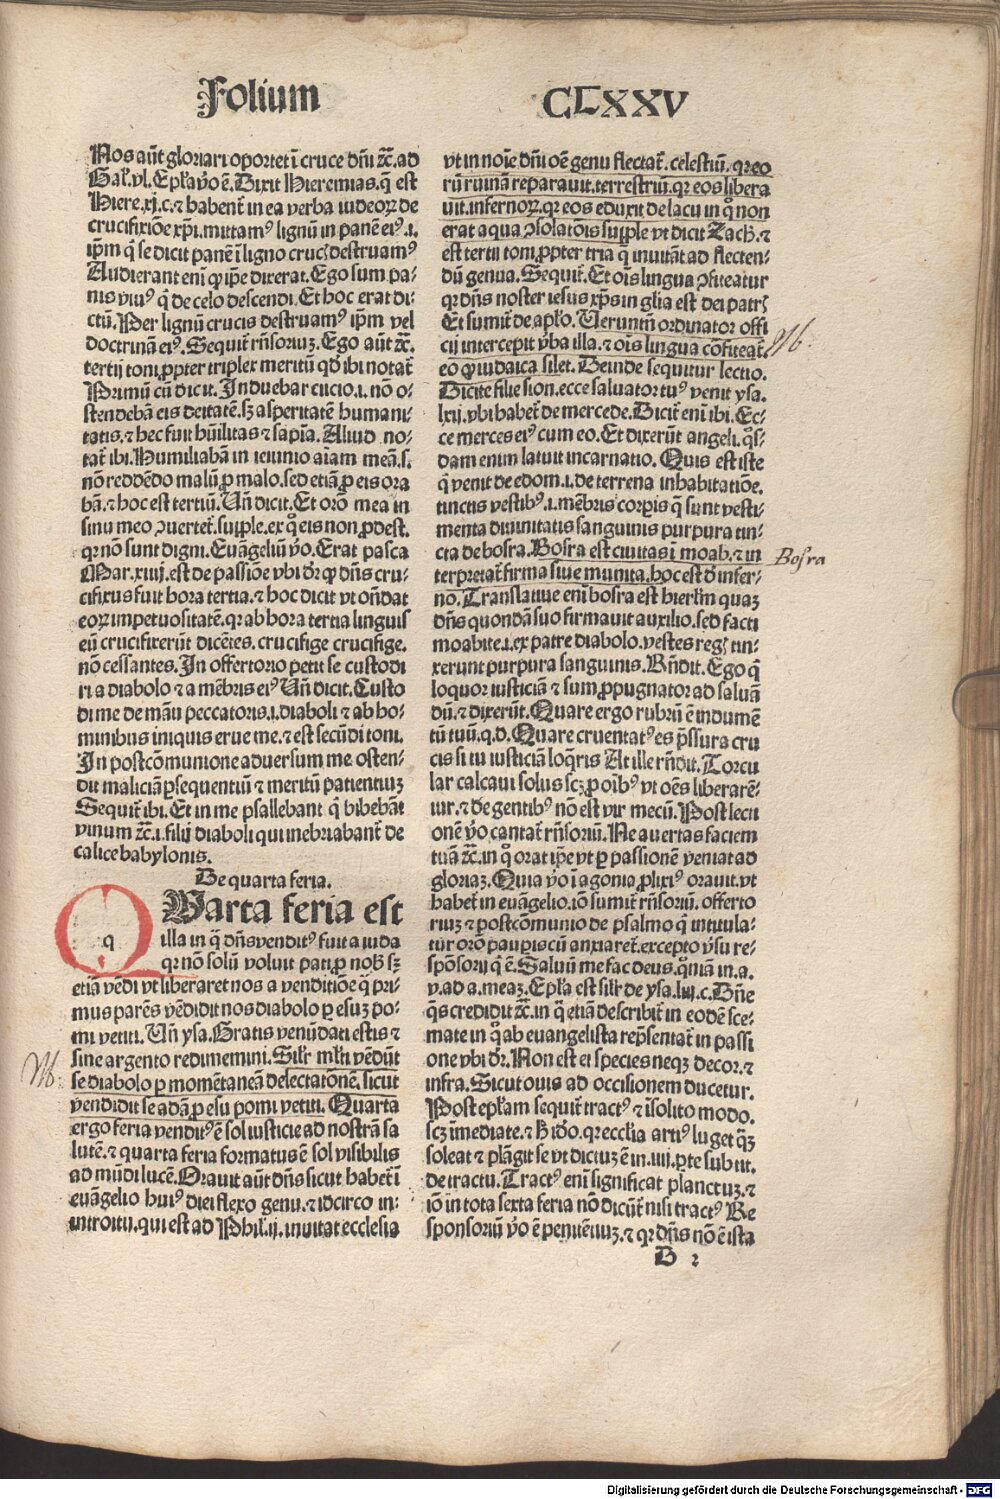 Folium CLXXV
Nos aūt gloriari oportet ī cruce dn̄i ⁊c̄. ad
Gal'. vl. Ep̄la v̊o ē. Dixit Hieremias. q̄ est
Hiere. xj. c. ⁊ habent̄ in ea verba iudeoꝝ de
crucifixiōe xp̄i. mittamꝰ lignū in panē eiꝰ .i.
ip̄m q̄ se dicit panē ī ligno crucꝭ destruamꝰ
Audierant enī ꝙ ip̄e dixerat. Ego sum pa-
nis viuꝰ q̄ de celo descendi. Et hoc erat di-
ctū. Per lignū crucis destruamꝰ ip̄m vel
doctrinā eiꝰ. Sequit̄ rn̄soriuꝫ. Ego aūt ⁊c̄.
tertij toni. ꝓpter triplex meritū qd̓ ibi notat̄
Primū cū dicit. Induebar cilicio .i. nō o-
stendebā eis deitatē. sꝫ asperitatē humani
tatis. ⁊ hec fuit hūilitas ⁊ sapīa. Aliud no-
tat̄ ibi. Humiliabā in ieiunio aīam meā. s.
nō reddēdo malū ꝓ malo. sed etiā ꝓ eis ora
bā. ⁊ hoc est tertiū. Vn̄ dicit. Et orō mea in
sinu meo ꝯuertet̄. supple. ex q̊ eis non ꝓdest.
qꝛ nō sunt digni. Euāgeliū v̊o. Erat pasca
Mar. xiiij. est de passiōe vbi dr̄ ꝙ dn̄s cru-
cifixus fuit hora tertia. ⁊ hoc dicit vt on̄dat
eoꝝ impetuositatē. qꝛ ab hora tertia linguis
eū crucifixerūt dicētes. crucifige crucifige.
nō cessantes. In offertorio petit se custodi
ri a diabolo ⁊ a mēbris eiꝰ Vn̄ dicit. Custo
di me de manu peccatoris .i. diaboli ⁊ ab ho-
minibus iniquis erue me. ⁊ est secūdi toni.
In postcōmunione aduersum me osten-
dit maliciā ꝑsequentiū ⁊ meritū patientiuꝫ
Sequit̄ ibi. Et in me psallebant q̄ bibebāt
vinum ⁊c̄ .i. filij diaboli qui inebriabant̄ de
calice babylonis.
De quarta feria.
QUarta feria est
q
illa in q̄ dn̄s venditꝰ fuit a iuda
qꝛ nō solū voluit pati ꝓ nob̓ sꝫ
etiā vēdi vt liberaret nos a venditiōe q̄ pri-
mus parēs vēdidit nos diabolo ꝑ esuꝫ po-
mi vetiti. Vn̄ ysa. Gratis venūdati estis ⁊
sine argento redimemini. Sil'r ml'ti vēdūt
se diabolo ꝑ momētaneā delectatōnē. sicut
vendidit se adā ꝓ esu pomi vetiti. Quarta
ergo feria venditꝰ ē sol iusticie ad nostrā sa
lutē. ⁊ quarta feria formatus ē sol visibilis
ad mūdi lucē. Orauit aūt dn̄s sicut habet̄ ī
euāgelio huiꝰ diei flexo genu. ⁊ idcirco in-
introitu. qui est ad Phil'. ij. inuitat ecclesia
vt in noīe dn̄i oē genu flectat̄. celestiū. qꝛ eo
rū ruinā reparauit. terrestriū. qꝛ eos libera
uit. infernoꝝ. qꝛ eos eduxit de lacu in q̊ non
erat aqua ꝯsolatōis supple vt dicit Zach. ⁊
est tertij toni. ꝓpter tria q̄ inuitāt ad flecten-
dū genua. Sequit̄. Et oīs lingua ꝯfiteatur
qꝛ dn̄s noster iesus xp̄s in gl'ia est dei patrꝭ
Et sumit̄ de ap̄lo. Veruntn̄ ordinator offi
cij intercepit v̓ba illa. ⁊ oīs lingua cōfiteat̄
eo ꝙ iudaica silet. Deinde sequitur lectio.
Dicite filie sion. ecce saluator tuꝰ venit ysa.
lxij. vbi habet̄ de mercede. Dicit̄ enī ibi. Ec-
ce merces eiꝰ cum eo. Et dixerūt angeli. q̊s-
dam enim latuit incarnatio. Quis est iste
q̄ venit de edom .i. de terrena inhabitatiōe.
tinctis vestibꝰ .i. mēbris corpis q̄ sunt vesti-
menta diuinitatis sanguinis purpura tin-
cta de bosra. Bosra est ciuitas ī moab. ⁊ in
terpretat̄ firma siue munita. hoc est d̓ infer-
no. Translatiue enī bosra est hierl'm quaꝫ
dn̄s quondā suo firmauit auxilio. sed facti
moabite .i. ex patre diabolo. vestes regꝭ tin-
xerunt purpura sanguinis. Rn̄dit. Ego q̄
loquor iusticiā ⁊ sum ꝓpugnator ad saluā
dū. ⁊ dixerūt. Quare ergo rubrū ē indumē
tū tuū. q. d. Quare cruentatꝰ es p̄ssura cru
cis si tu iusticiā loq̄ris At ille rn̄dit. Torcu
lar calcaui solus scꝫ ꝓ oībꝰ vt oēs liberarē-
tur. ⁊ de gentibꝰ nō est vir mecū. Post lecti
onē v̊o cantat̄ rn̄soriū. Ne auertas faciem
tuā ⁊c̄. in q̊ orat ip̄e vt ꝑ passionē veniat ad
gloriaꝫ. Quia v̊o ī agonia ꝓlixiꝰ orauit. vt
habet̄ in euāgelio. iō sumit̄ rn̄soriū. offerto
riuꝫ ⁊ postcōmunio de psalmo q̄ intitula-
tur orō pauꝑis cū anxiaret̄. excepto v̓su re-
spōsorij q̄ ē. Saluū me fac deus. qm̄ in. a.
v. ad a. meaꝫ. Ep̄la est sil'r de ysa. liij. c. Dn̄e
q̄s credidit ⁊c̄. in q̄ etiā describit̄ in eodē sce-
mate in q̊ ab euangelista rep̄sentat̄ in passi
one vbi dr̄. Non est ei species neqꝫ decor. ⁊
infra. Sicut ouis ad occisionem ducetur.
Post ep̄lam sequit̄ tractꝰ ⁊ īsolito modo.
scꝫ īmediate. ⁊ h̓ id̓o. qꝛ eccl'ia artiꝰ luget qꝫ
soleat ⁊ plāgit se vt dictuꝫ ē in. iiij. ꝑte sub tit.
de tractu. Tractꝰ enī significat planctuꝫ. ⁊
iō in tota sexta feria nō dicūt̄ nisi tractꝰ Re
sponsoriū v̊o ē penitētiuꝫ. ⁊ qꝛ dn̄s nō ē ista
B 2
Bosra
Digitalisierung gefördert durch die Deutsche Forschungsgemeinschaft - DFG